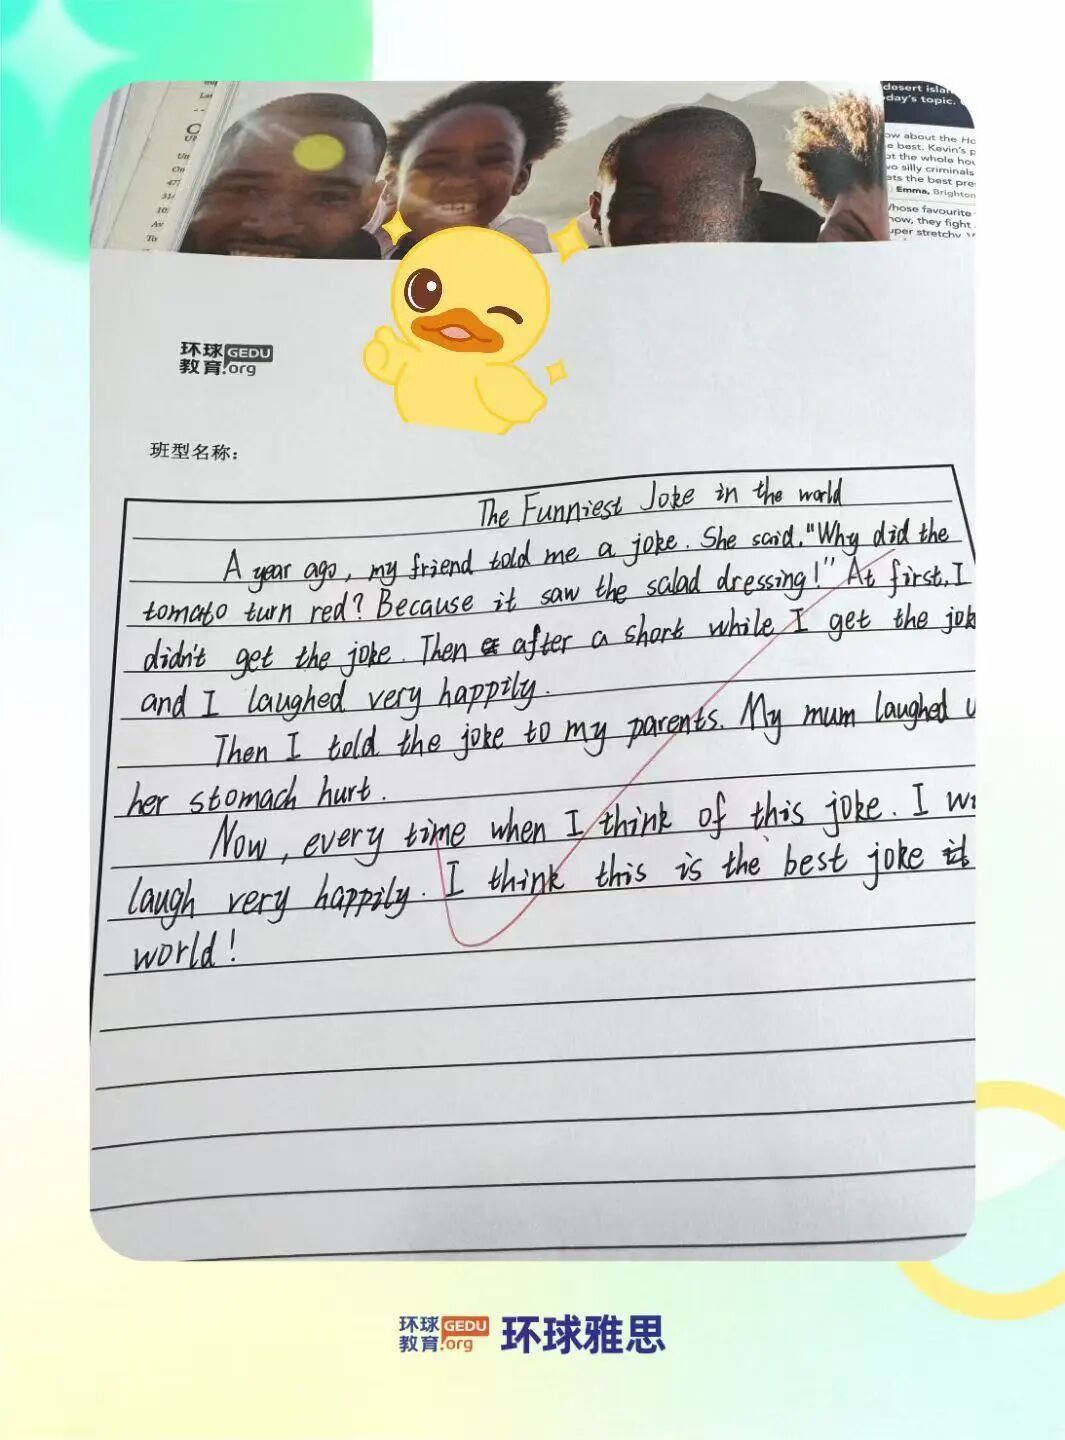 desert islan
day's topic.
ow about the Ho
e best. Kevin's p
ot the whole hou
wo silly criminals
ats the best pre
Emma, Brighton
Whose favourite
how, they fight
uper stretchy
环球 GEDU
教育.org
班型名称:
The Funniest Joke in the world
A year ago, my friend told me a joke. She said, "Why did the
tomato turn red? Because it saw the salad dressing!" At first, I
didn't get the joke. Then after a short while I get the jok
and I laughed very happily.
Then I told the joke to my parents. My mum laughed u
her stomach hurt.
Now, every time when I think of this joke. I wi
laugh very happily. I think this is the best joke
world!
环球 GEDU
教育.org
环球雅思